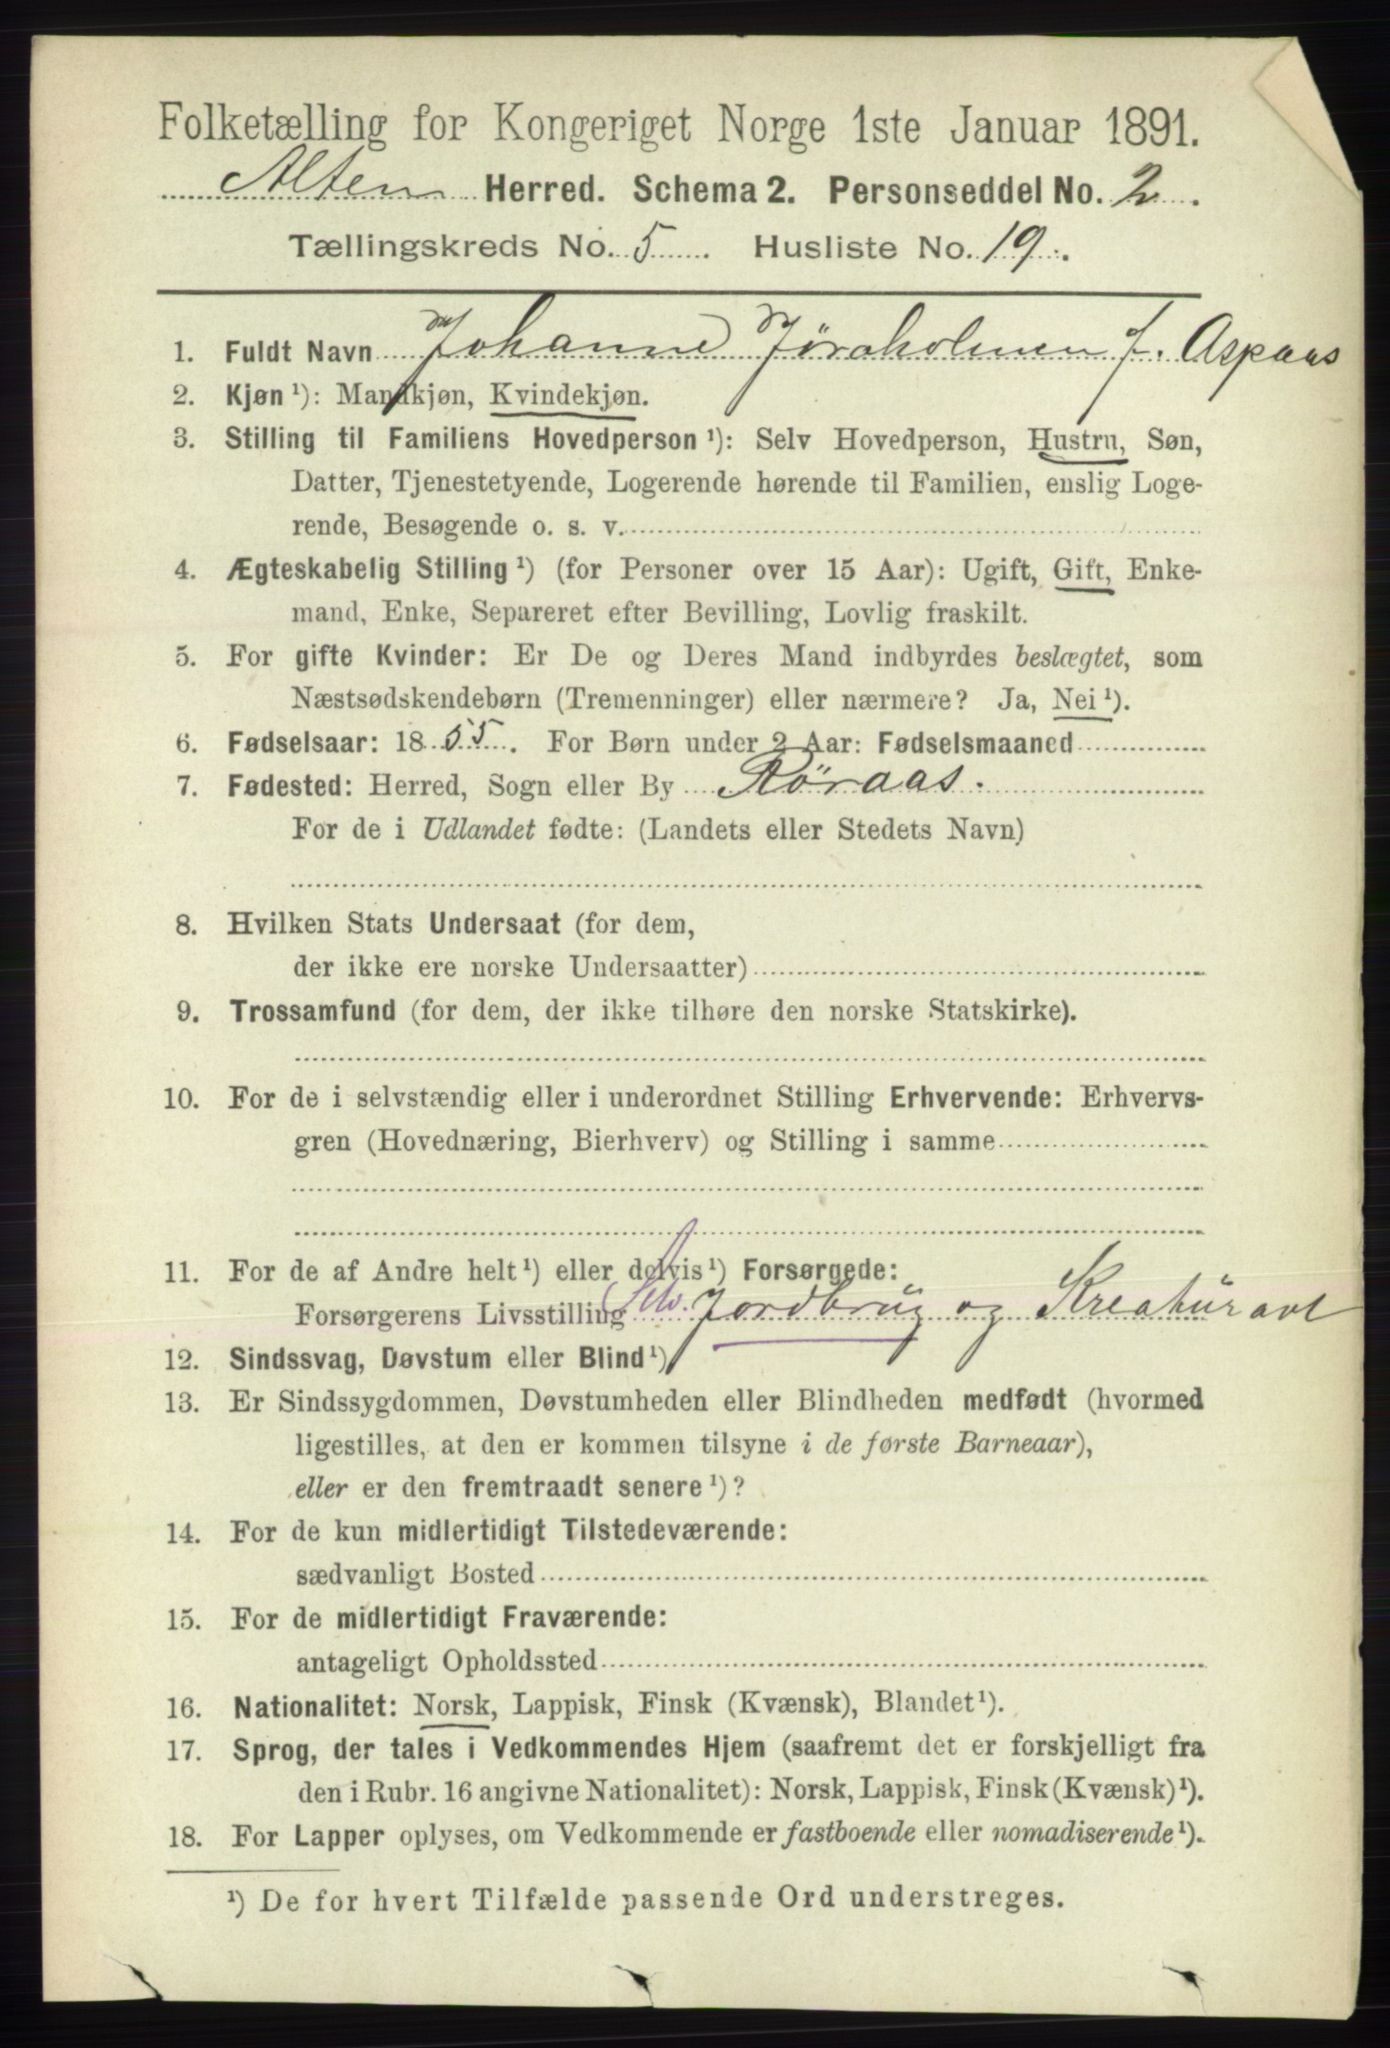 Folketælling for Kongeriget Norge 1ste Januar 1891.
Alten Herred. Schema 2. Personseddel No. 2.
Tællingskreds No. 5. Husliste No. 19.
1. Fuldt Navn Johanne Jöraholmen f. Aspaas
2. Kjøn ¹): Mandkjøn, Kvindekjøn.
3. Stilling til Familiens Hovedperson ¹): Selv Hovedperson, Hustru, Søn,
Datter, Tjenestetyende, Logerende hørende til Familien, enslig Loge-
rende, Besøgende o. s. v.
4. Ægteskabelig Stilling ¹) (for Personer over 15 Aar): Ugift, Gift, Enke-
mand, Enke, Separeret efter Bevilling, Lovlig fraskilt.
5. For gifte Kvinder: Er De og Deres Mand indbyrdes beslægtet, som
Næstsødskendebørn (Tremenninger) eller nærmere? Ja, Nei ¹).
6. Fødselsaar: 1855. For Børn under 2 Aar: Fødselsmaaned
7. Fødested: Herred, Sogn eller By Röraas.
For de i Udlandet fødte: (Landets eller Stedets Navn)
8. Hvilken Stats Undersaat (for dem,
der ikke ere norske Undersaatter)
9. Trossamfund (for dem, der ikke tilhøre den norske Statskirke).
10. For de i selvstændig eller i underordnet Stilling Erhvervende: Erhvervs-
gren (Hovednæring, Bierhverv) og Stilling i samme
11. For de af Andre helt ¹) eller delvis ¹) Forsørgede:
Forsørgerens Livsstilling Selv. Jordbrug og Kreaturavl
12. Sindssvag, Døvstum eller Blind ¹)
13. Er Sindssygdommen, Døvstumheden eller Blindheden medfødt (hvormed
ligestilles, at den er kommen tilsyne i de første Barneaar),
eller er den fremtraadt senere ¹)?
14. For de kun midlertidigt Tilstedeværende:
sædvanligt Bosted
15. For de midlertidigt Fraværende:
antageligt Opholdssted
16. Nationalitet: Norsk, Lappisk, Finsk (Kvænsk), Blandet ¹).
17. Sprog, der tales i Vedkommendes Hjem (saafremt det er forskjelligt fra
den i Rubr. 16 angivne Nationalitet): Norsk, Lappisk, Finsk (Kvænsk) ¹).
18. For Lapper oplyses, om Vedkommende er fastboende eller nomadiserende ¹).
¹) De for hvert Tilfælde passende Ord understreges.